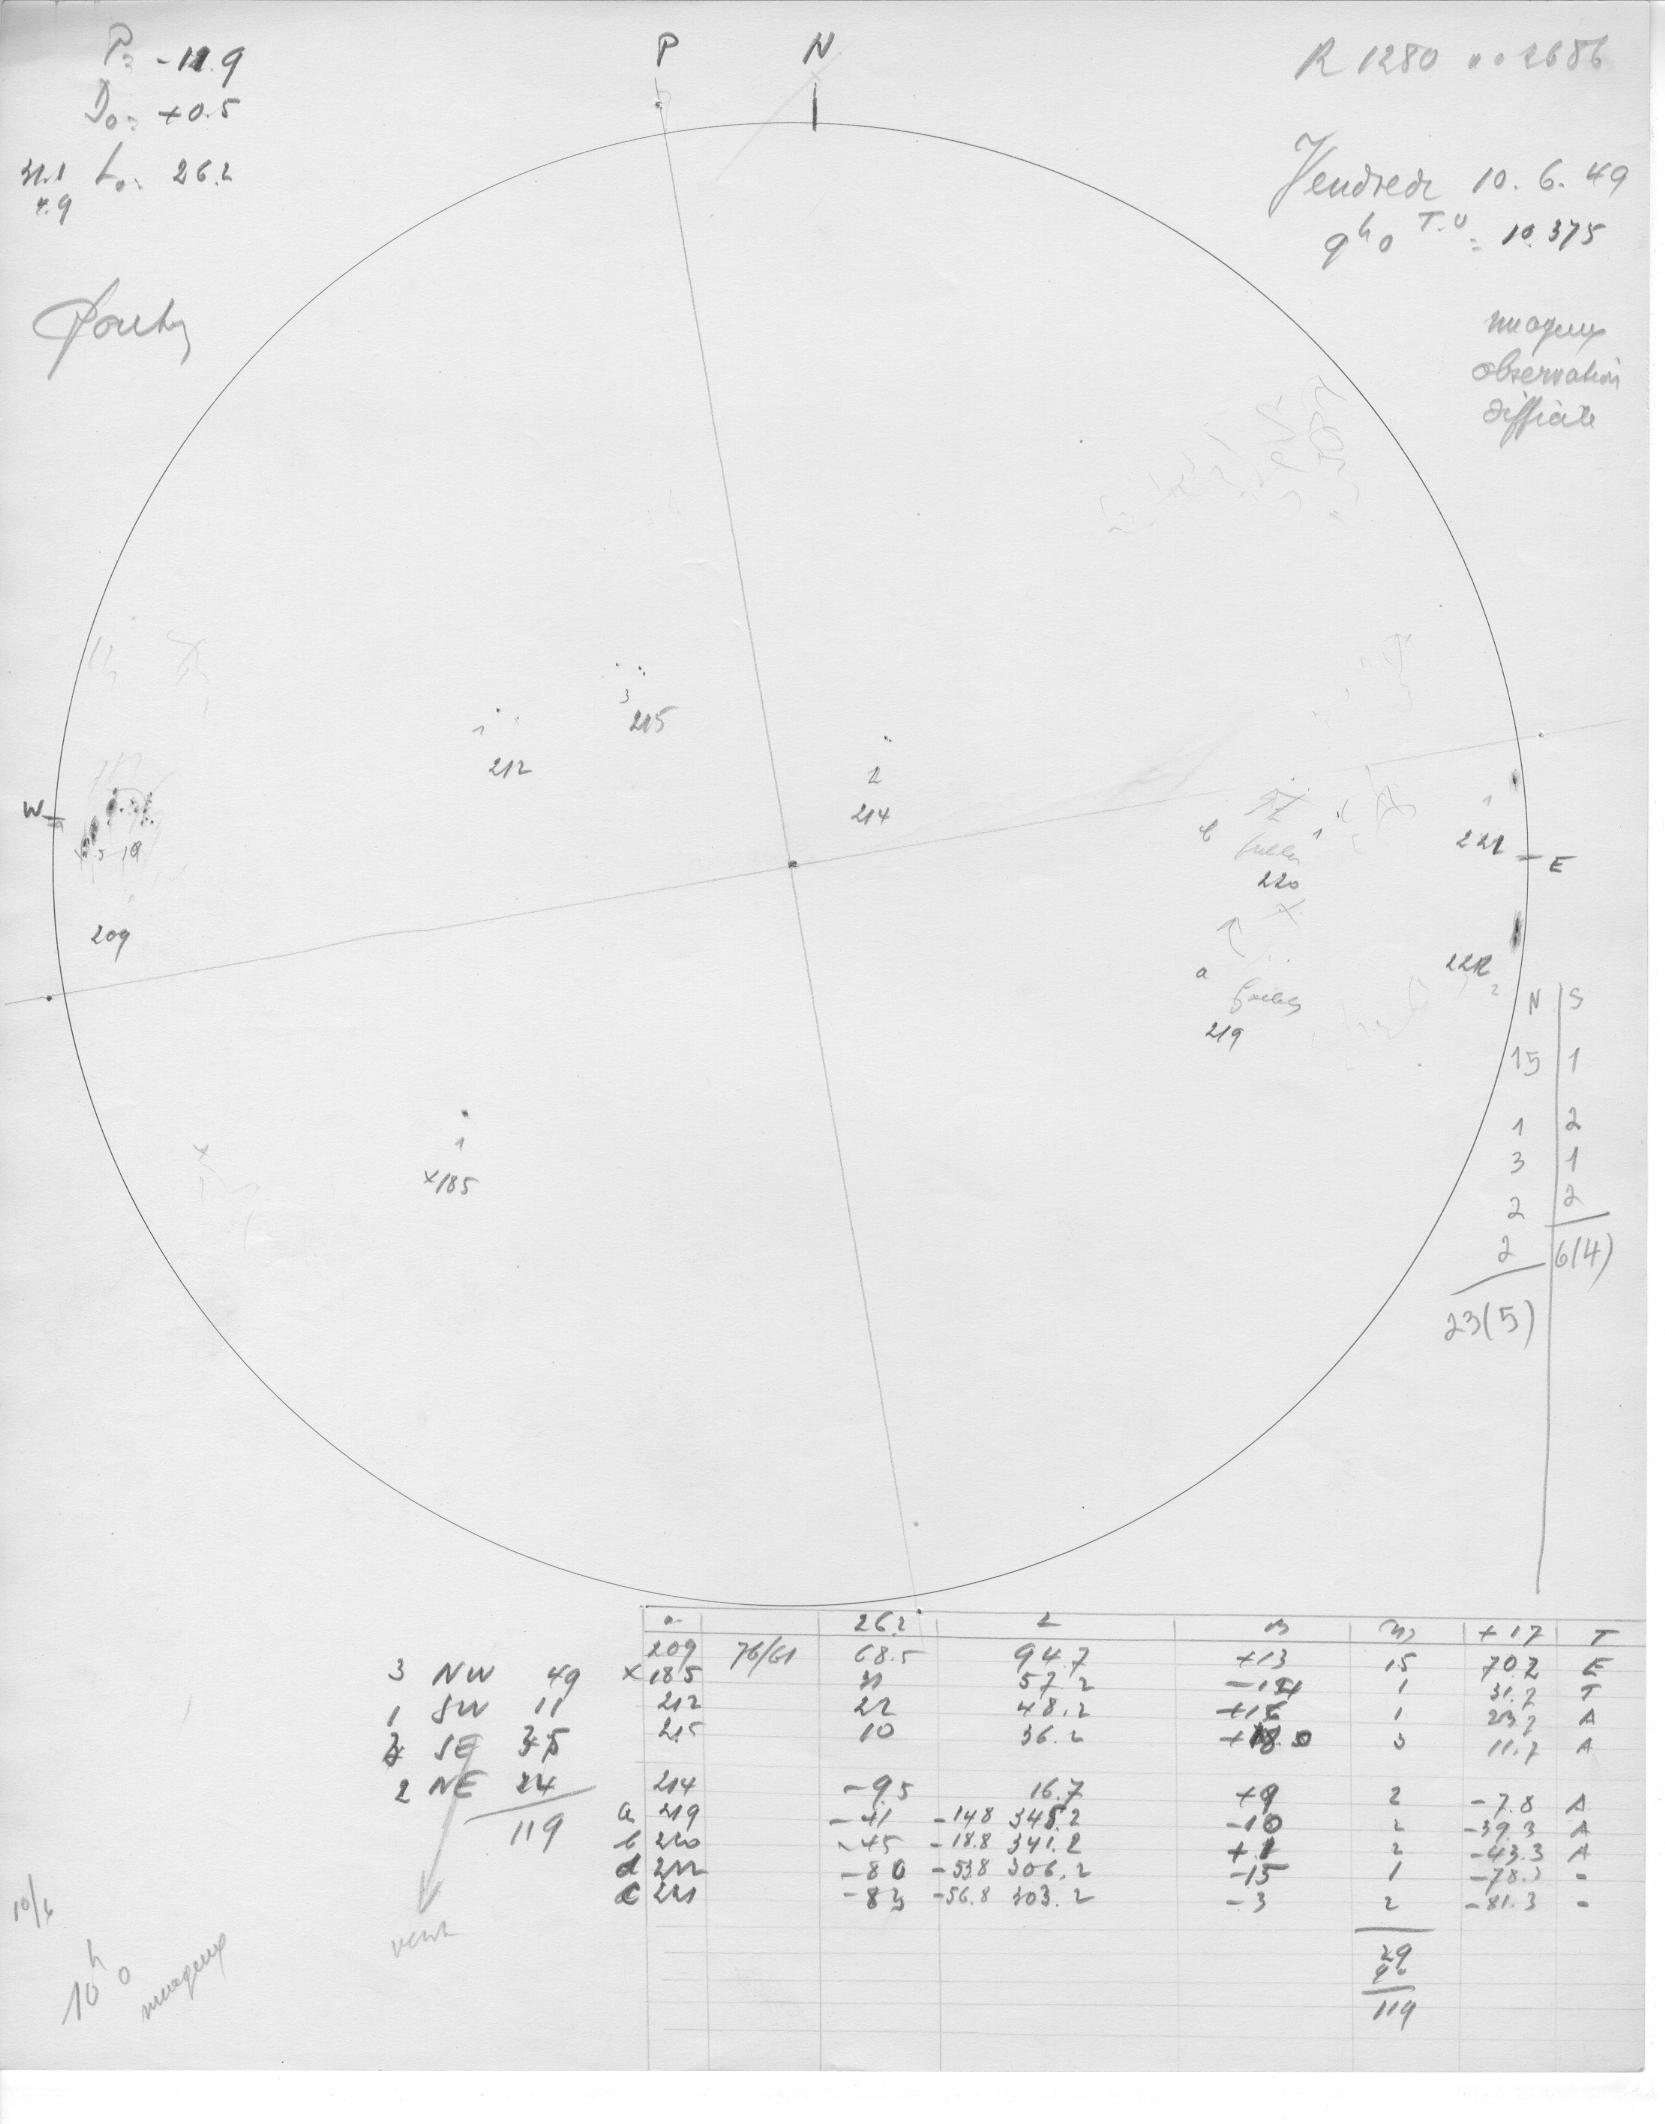 P= -11.9
D₀= +0.5
L₀= 26.2
4.9
P
N
R 1280 .. 2686
Vendredi 10. 6. 49
9ʰ0 T.U = 10.375
nuageux
observation
difficile
3
215
1
212
2
214
W
19
209
b
faibles
1
220
1
221
E
a
faibles
219
222
2
1
×185
N | S
15 | 1
1 | 2
3 | 1
2 | 2
2 | 6(4)
23(5)
26.2 L B +17 T
209 76/61 68.5 94.7 +13 15 70.2 E
×185 31 57.2 1 31.7 T
212 22 48.2 1 23.7 A
215 10 36.2 3 11.7 A
214 -9.5 16.7 +9 2 -7.8 A
a 219 -41 -14.8 345.2 -10 2 -39.3 A
b 220 -45 -18.8 341.2 +1 2 -43.3 A
d 222 -80 -53.8 306.2 -15 1 -78.3 -
c 221 -83 -56.8 303.2 -3 2 -81.3 -
29
90
119
3 NW 49
1 SW 11
SE 35
2 NE 24
119
10/6
10ʰ0
nuageux